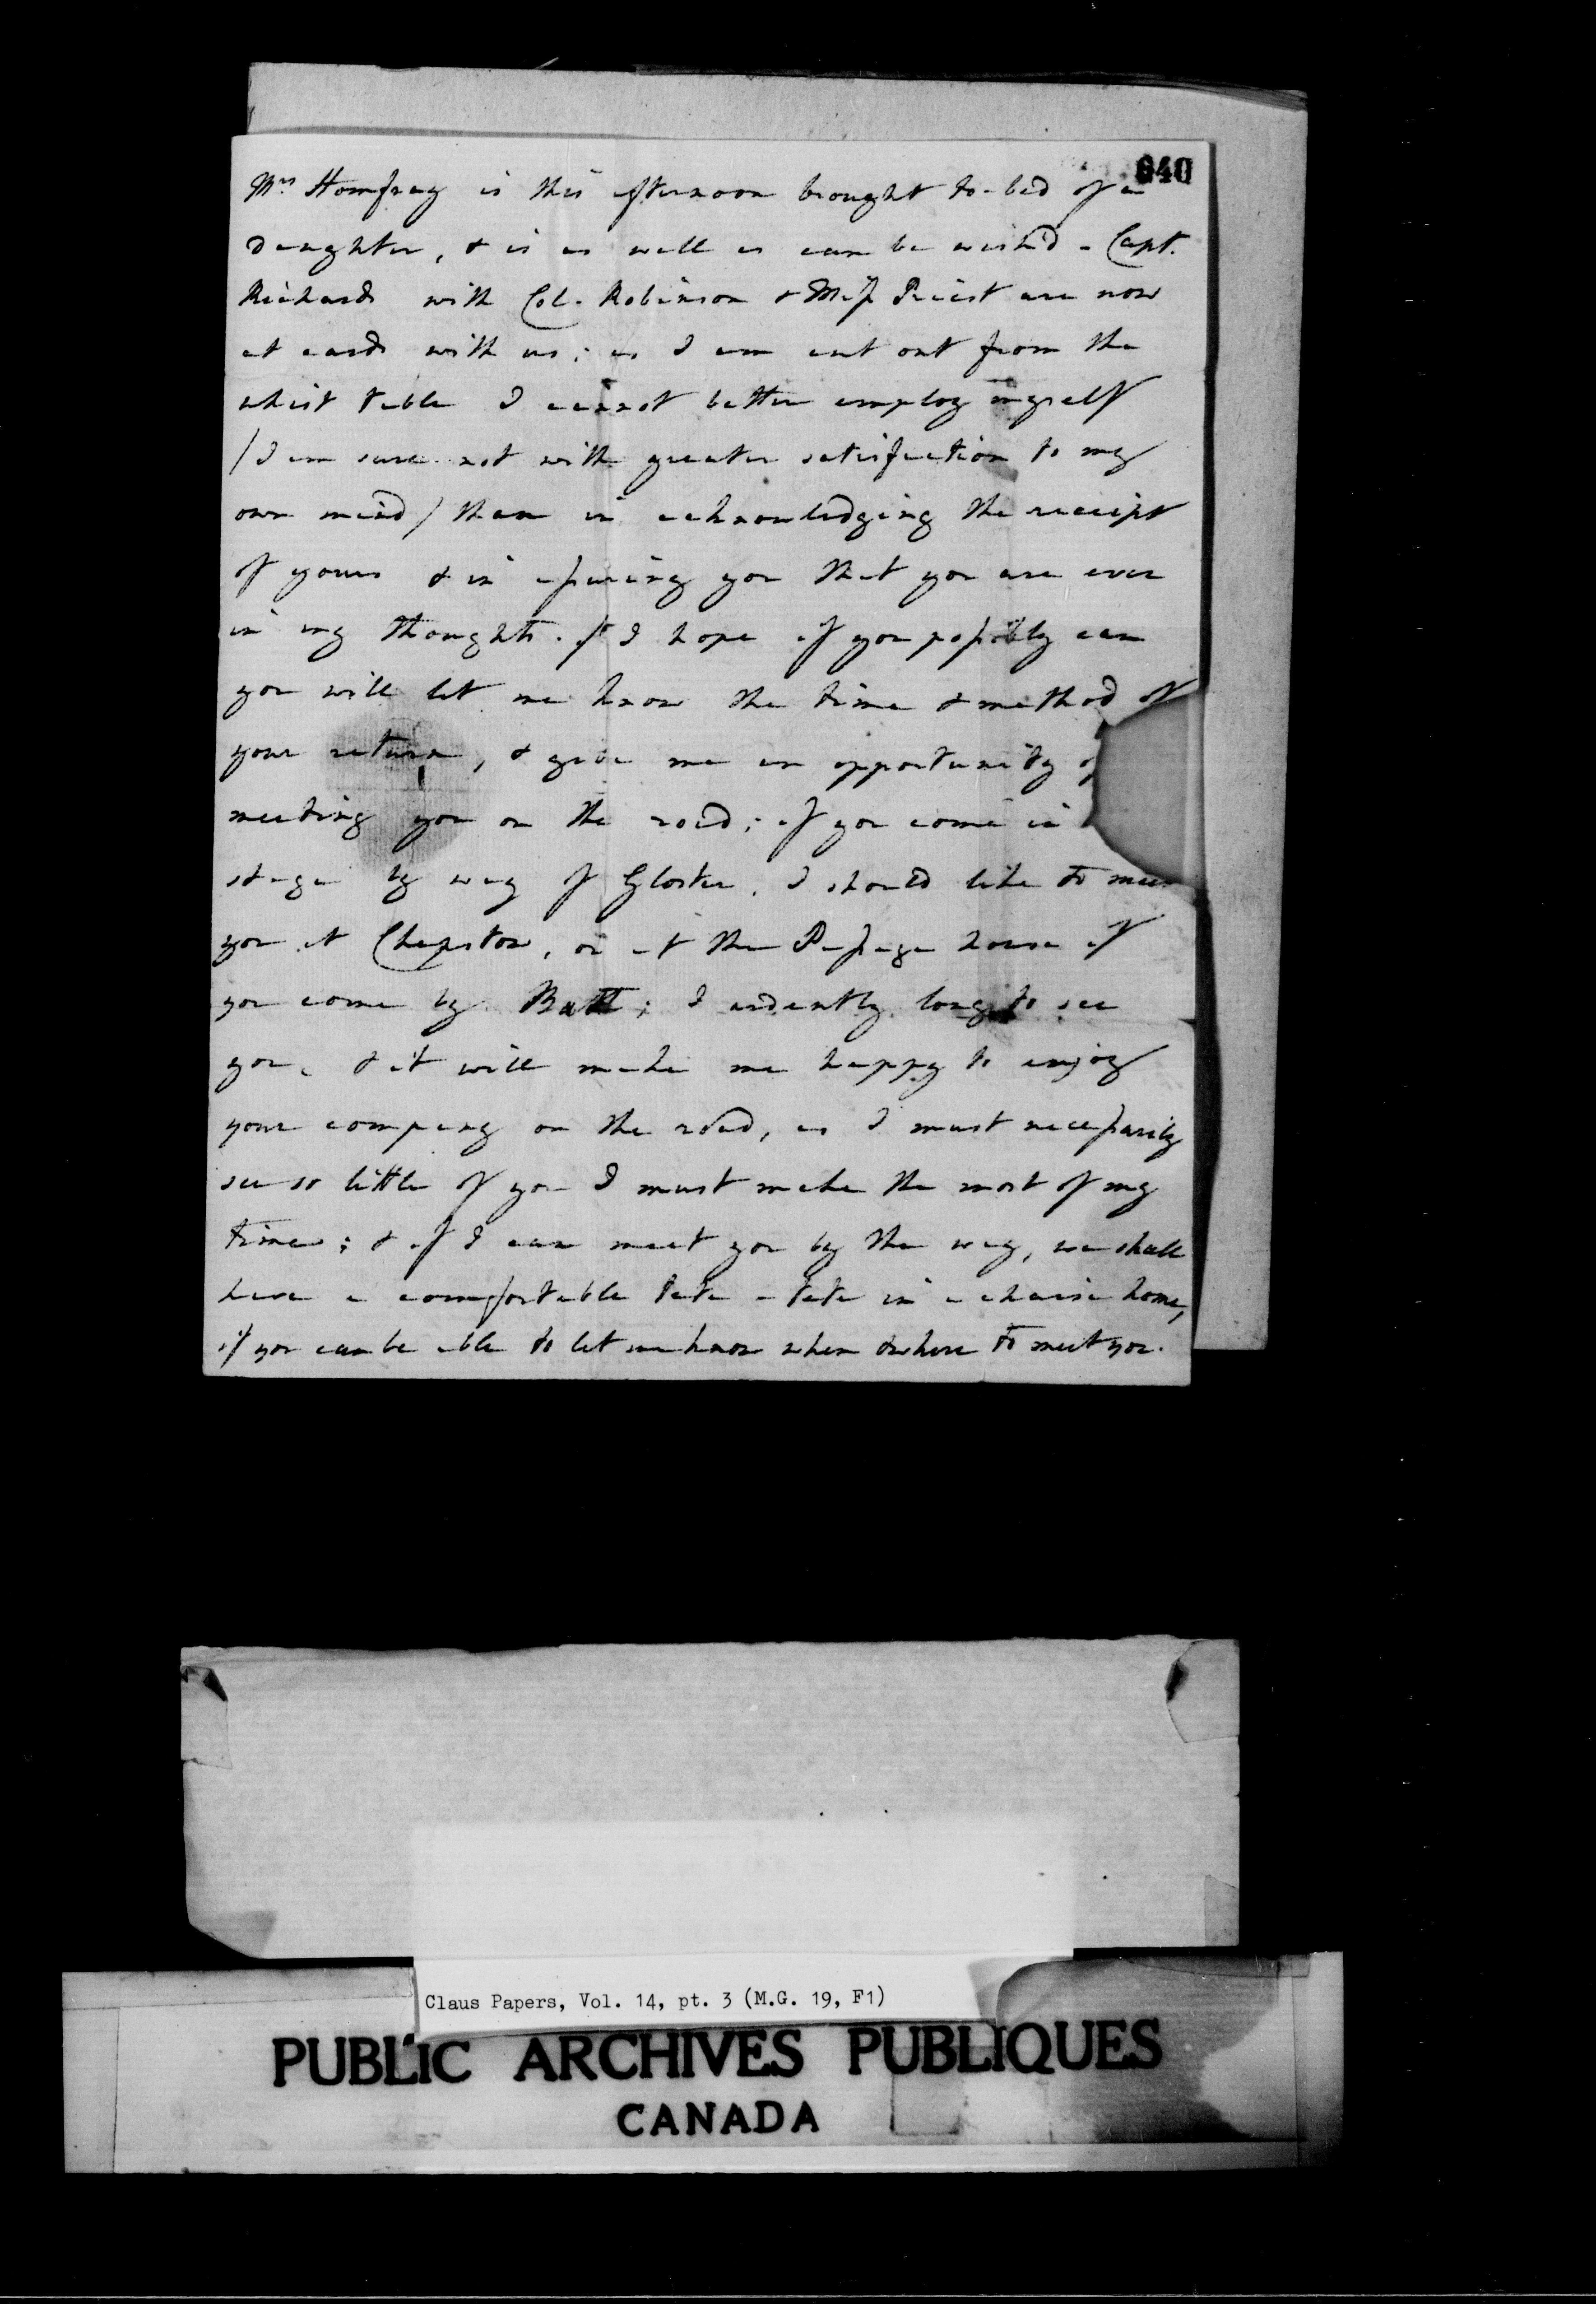 640
Mrs Homfray is this afternoon brought to-bed of a
daughter, & is as well as can be wish'd - Capt.
Richards with Col. Robinson & Miss Priest are now
at cards with us; as I am cut out from the
whist table I cannot better employ myself
/I am sure not with greater satisfaction to my
own mind/ than in acknowledging the receipt
of yours & in assuring you that you are ever
in my thoughts. I hope if you possibly can
you will let me know the time & method of
your return, & give me an opportunity of
meeting you on the road; if you come in
stage by way of Gloster, I should like to meet
you at Chepstow, or at the Passage house if
you come by Bath; I ardently long to see
you, & it will make me happy to enjoy
your company on the road, as I must necessarily
see so little of you I must make the most of my
time; & if I can meet you by the way, we shall
have a comfortable tete a tete in a chaise home,
if you can be able to let me know when & where to meet you.
Claus Papers, Vol. 14, pt. 3 (M.G. 19, F1)
PUBLIC ARCHIVES PUBLIQUES
CANADA